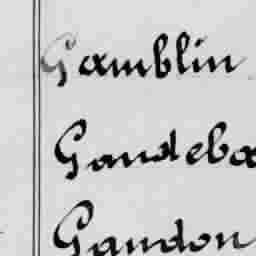 Gamblin
Gandebo
Gandon